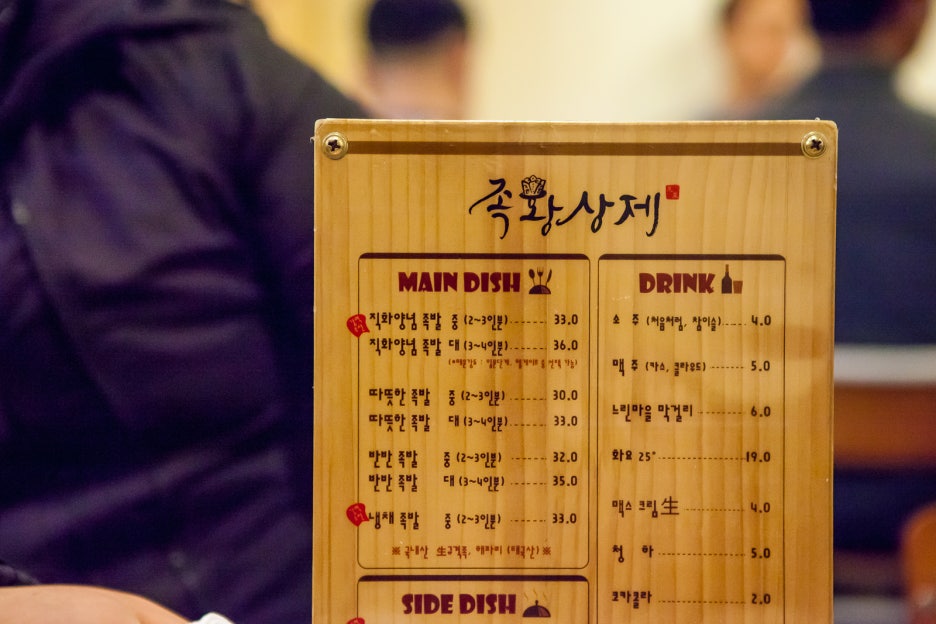 족황상제
MAIN DISH
직화양념 족발 중 (2~3인분) 33.0
직화양념 족발 대 (3~4인분) 36.0
따뜻한 족발 중 (2~3인분) 30.0
따뜻한 족발 대 (3~4인분) 33.0
반반 족발 중 (2~3인분) 32.0
반반 족발 대 (3~4인분) 35.0
냉채 족발 중 (2~3인분) 33.0
※ 국내산 生 해파리 (태국산) ※
SIDE DISH
DRINK
소 주 (처음처럼, 참이슬) 4.0
맥 주 (카스, 클라우드) 5.0
느린마을 막걸리 6.0
화요 25° 19.0
맥스 크림 生 4.0
청 하 5.0
코카콜라 2.0